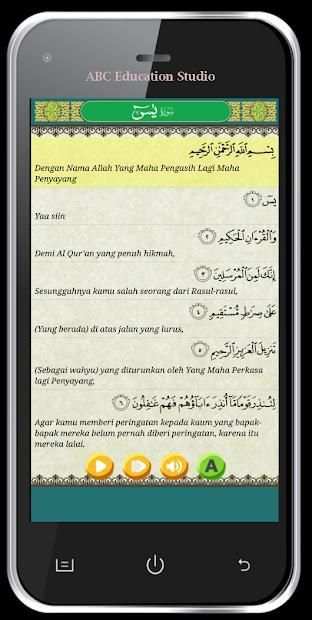 ABC Education Studio
سورة يسٓ
بِسْمِ اللَّهِ الرَّحْمَٰنِ الرَّحِيمِ
Dengan Nama Allah Yang Maha Pengasih Lagi Maha
Penyayang
يسٓ ١
Yaa siin
وَالْقُرْءَانِ الْحَكِيمِ ٢
Demi Al Qur'an yang penuh hikmah,
إِنَّكَ لَمِنَ الْمُرْسَلِينَ ٣
Sesungguhnya kamu salah seorang dari Rasul-rasul,
عَلَىٰ صِرَاطٍ مُّسْتَقِيمٍ ٤
(Yang berada) di atas jalan yang lurus,
تَنزِيلَ الْعَزِيزِ الرَّحِيمِ ٥
(Sebagai wahyu) yang diturunkan oleh Yang Maha Perkasa
lagi Penyayang,
لِتُنذِرَ قَوْمًا مَّا أُنذِرَ ءَابَاؤُهُمْ فَهُمْ غَٰفِلُونَ ٦
Agar kamu memberi peringatan kepada kaum yang bapak-
bapak mereka belum pernah diberi peringatan, karena itu
mereka lalai.
A